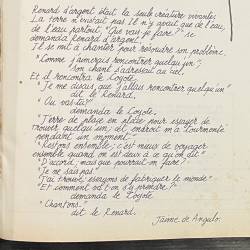 Renard d'argent était la seule créature vivante.
La terre n'existait pas. Il n'y avait que de l'eau,
de l'eau partout. "Que vais-je faire?" se
demanda Renard d'argent.
Il se mit à chanter pour résoudre son problème.
"Comme j'aimerais rencontrer quelqu'un",
son chant s'adressait au ciel.
Et il rencontra le Coyote.
"Je me disais que j'allais rencontrer quelqu'un"
dit le Renard.
"Où vas-tu?"
demanda le Coyote.
de place en place pour essayer de
trouver quelqu'un; cet endroit m'a tourmenté
pendant un moment."
"Restons ensemble; c'est mieux de voyager
ensemble quand on est deux à ce qu'on dit"
"D'accord, mais que pourrait-on faire?"
"Je ne sais pas"
"J'ai trouvé: essayons de fabriquer le monde"
"Et comment va-t-on s'y prendre?"
demanda le Coyote
"Chantons"
dit le Renard.
Jaime de Angulo.